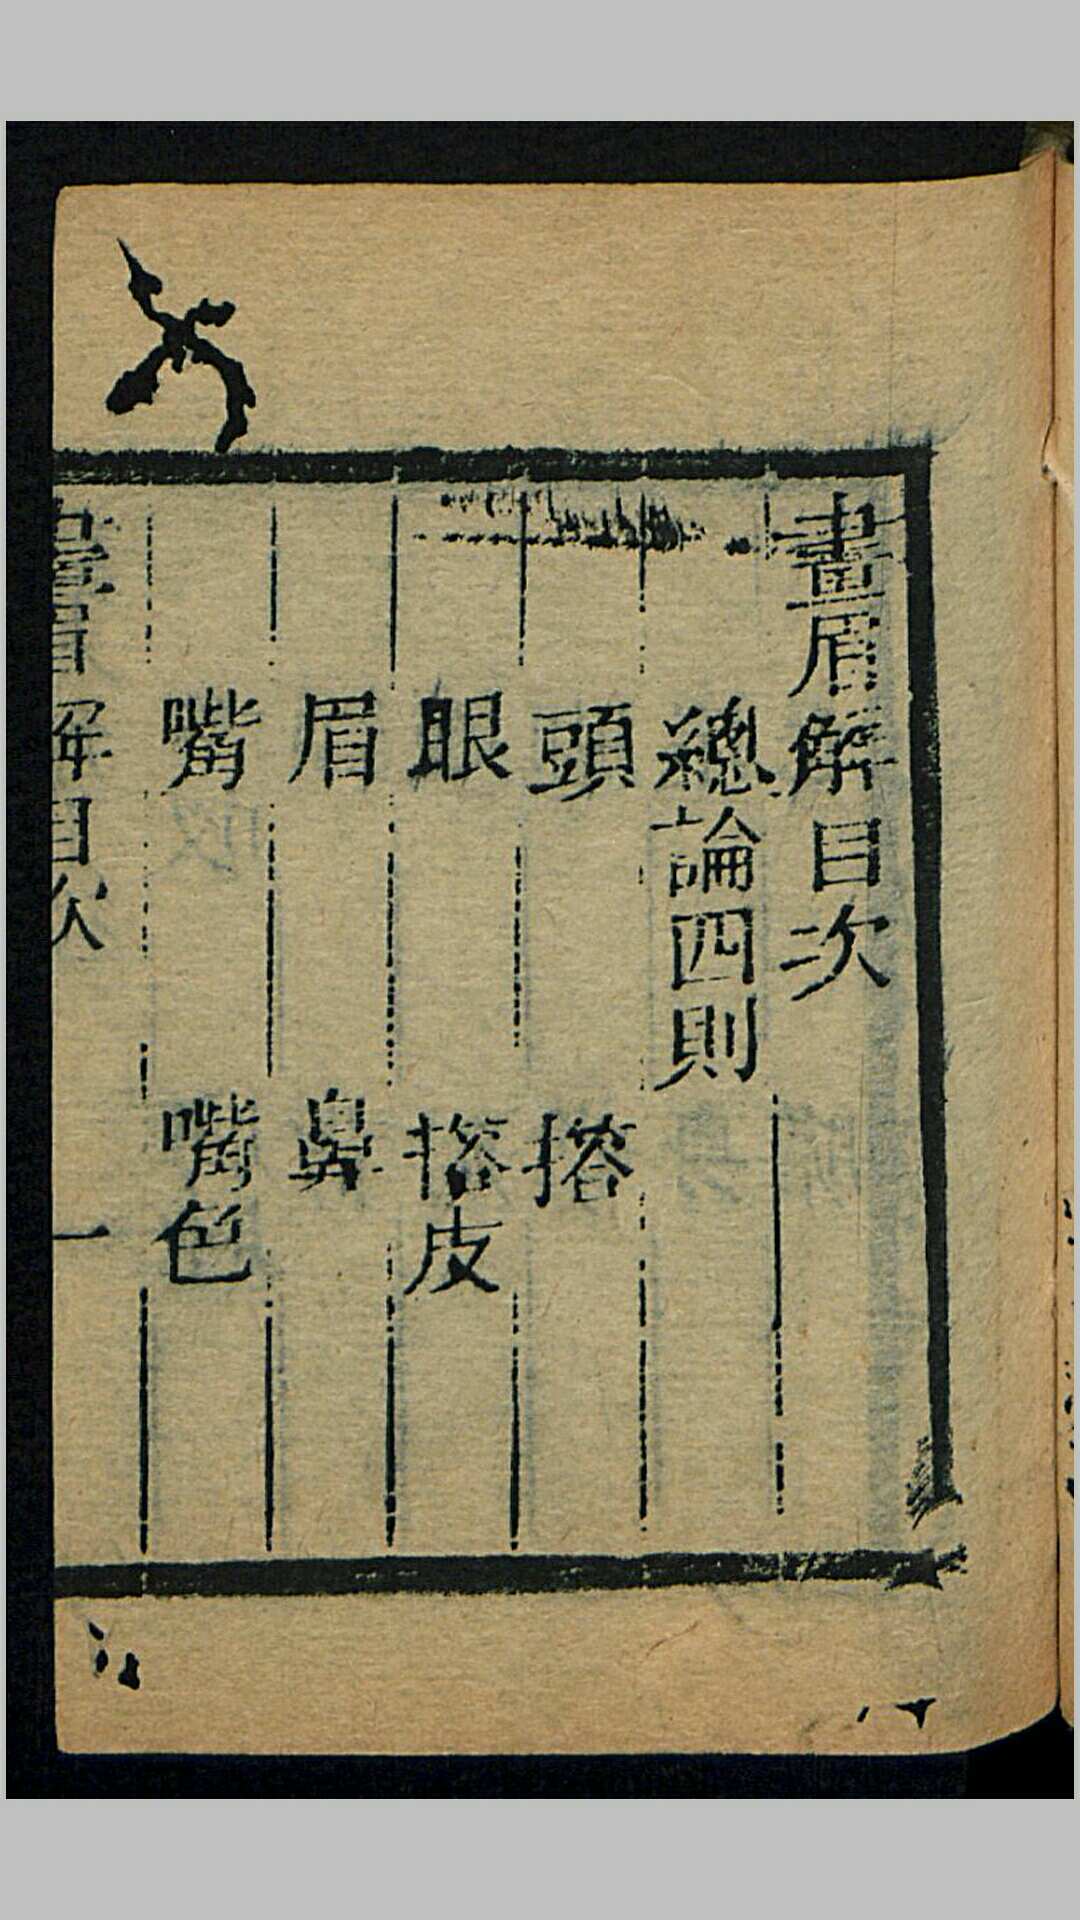 畫眉解目次
總論四則
頭
搈
眼
搈皮
眉
鼻
嘴
嘴色
畫眉解目次
一